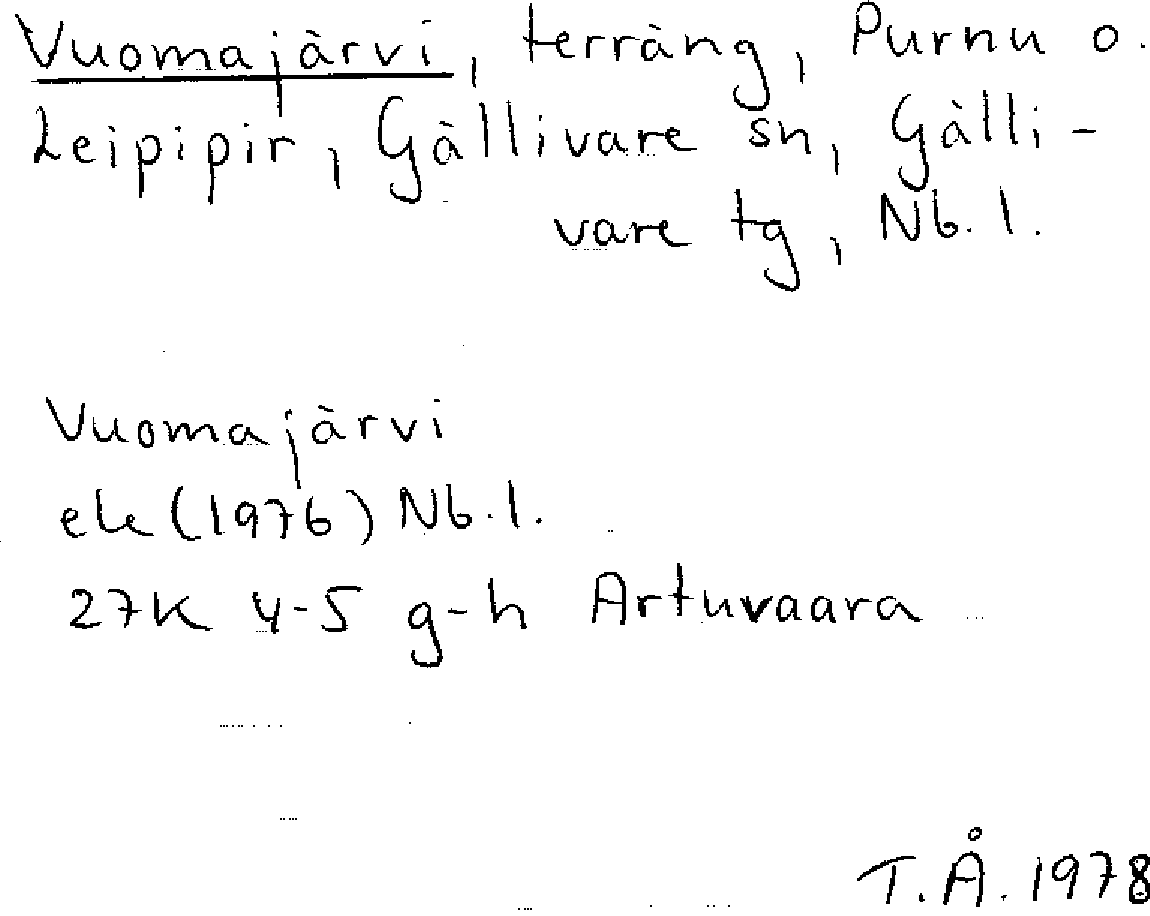 Vuomajärvi, terräng, Purnu o.
Leipipir, Gällivare sn, Gälli-
vare tg, Nb. l.
Vuomajärvi
ek (1976) Nb. l.
27K 4-5 g-h Artuvaara
T.Å. 1978